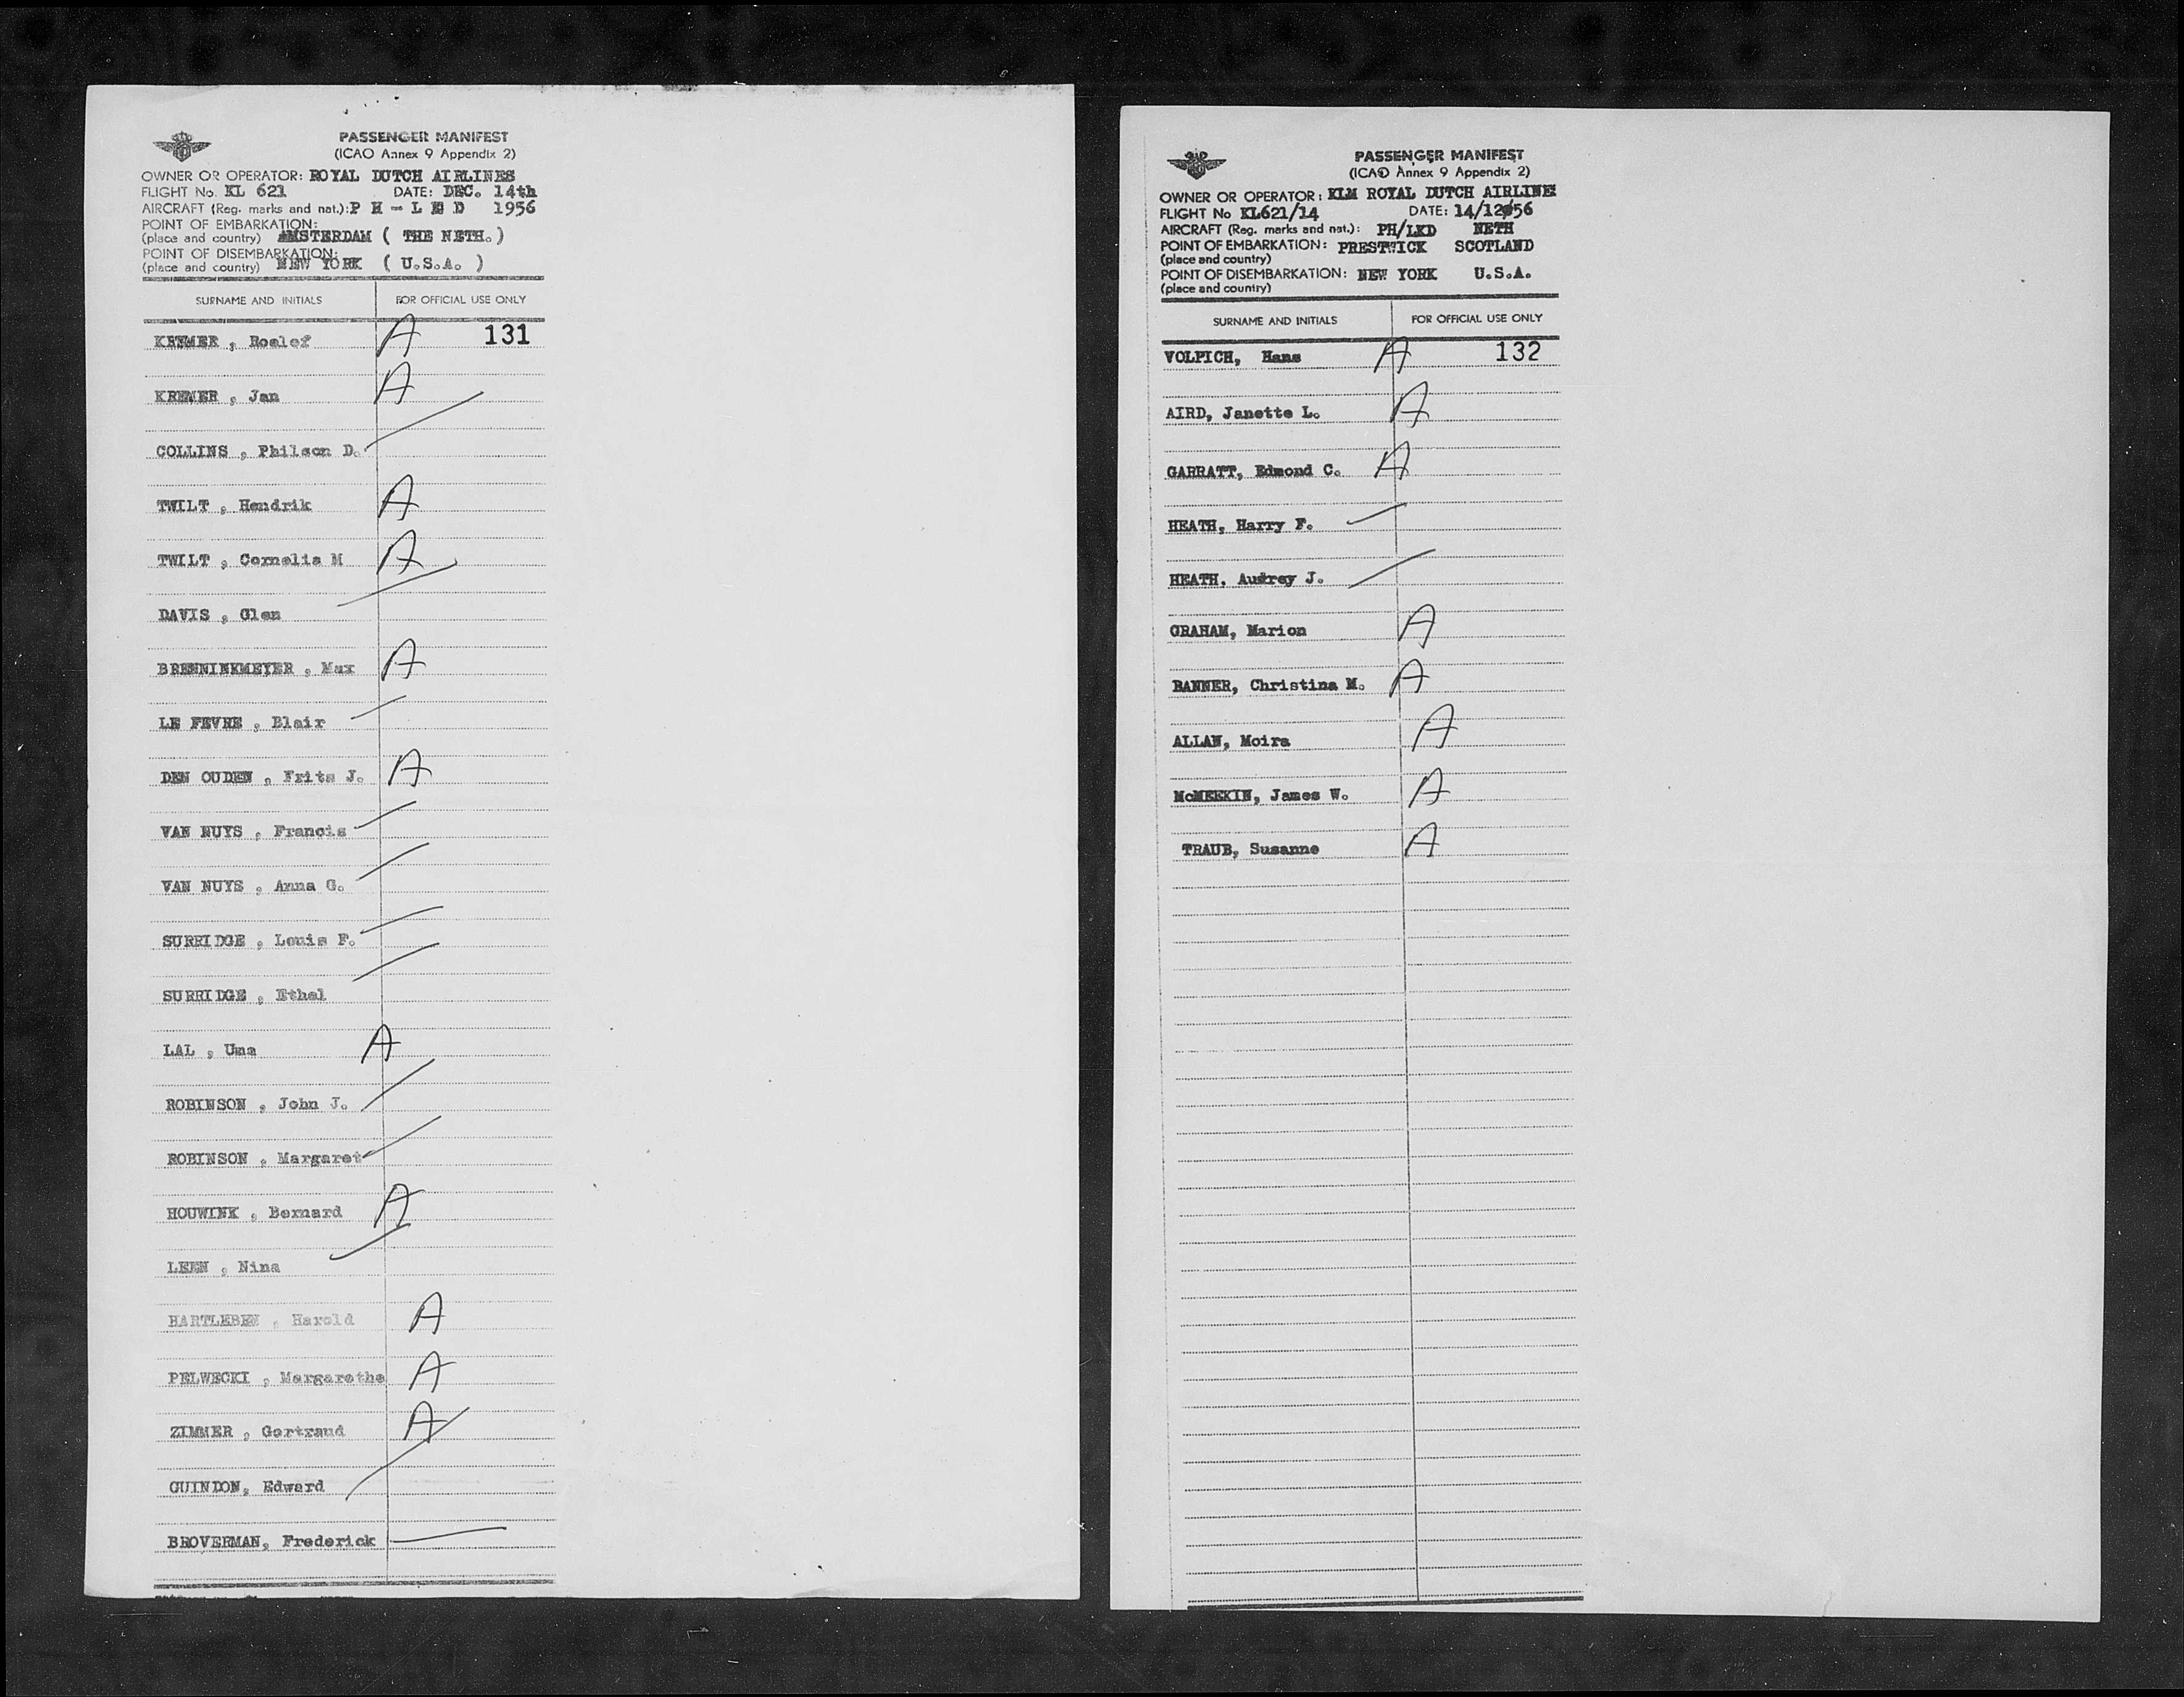 PASSENGER MANIFEST
(ICAO Annex 9 Appendix 2)
OWNER OR OPERATOR: ROYAL DUTCH AIRLINES
FLIGHT No. KL 621 DATE: DEC. 14th
AIRCRAFT (Reg. marks and nat.): P H - L E D 1956
POINT OF EMBARKATION:
(place and country) AMSTERDAM ( THE NETH. )
POINT OF DISEMBARKATION:
(place and country) NEW YORK ( U.S.A. )
SURNAME AND INITIALS FOR OFFICIAL USE ONLY
KREMER , Roelef A 131
KREMER , Jan A
COLLINS , Philson D.
TWILT , Hendrik A
TWILT , Cornelia M A
DAVIS , Glen
BRENNINKMEYER , Max A
LE FEVRE , Blair
DEN OUDEN , Frits J. A
VAN NUYS , Francis
VAN NUYS , Anna G.
SURRIDGE , Louis F.
SURRIDGE , Ethel
LAL , Uma A
ROBINSON , John J.
ROBINSON , Margaret
HOUWINK , Bernard A
LEEN , Nina
HARTLEBEN , Harold A
PELWECKI , Margarethe A
ZIMMER , Gertraud A
GUINDON, Edward
BROVERMAN, Frederick
PASSENGER MANIFEST
(ICAO Annex 9 Appendix 2)
OWNER OR OPERATOR: KLM ROYAL DUTCH AIRLINES
FLIGHT No KL621/14 DATE: 14/12/56
AIRCRAFT (Reg. marks and nat.): PH/LKD NETH
POINT OF EMBARKATION: PRESTWICK SCOTLAND
(place and country)
POINT OF DISEMBARKATION: NEW YORK U.S.A.
(place and country)
SURNAME AND INITIALS FOR OFFICIAL USE ONLY
VOLPICH, Hans A 132
AIRD, Janette L. A
GARRATT, Edmond C. A
HEATH, Harry F.
HEATH, Audrey J.
GRAHAM, Marion A
BANNER, Christina M. A
ALLAN, Moira A
McMEEKIN, James W. A
TRAUB, Susanne A